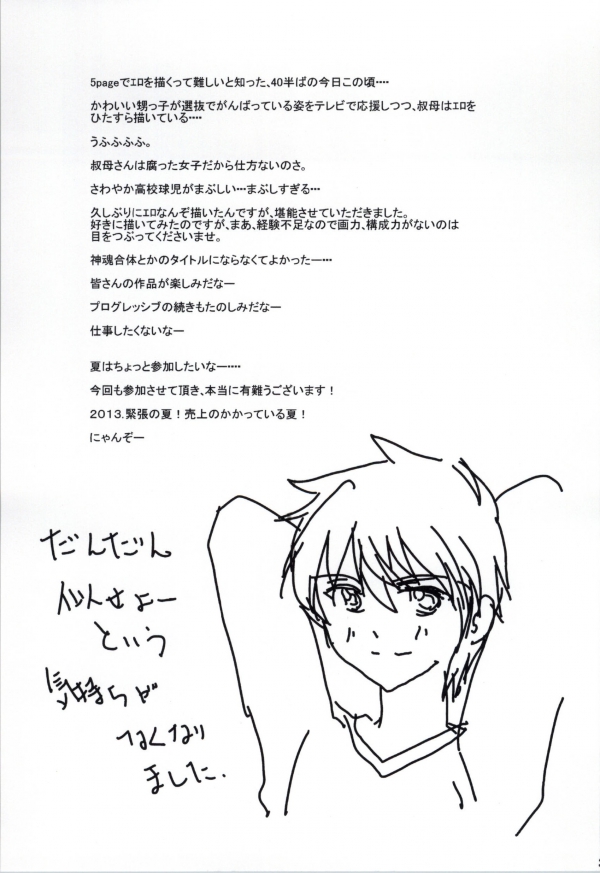 5pageでｴﾛを描くって難しいと知った、40半ばの今日この頃‥‥
かわいい甥っ子が選抜でがんばっている姿をテレビで応援しつつ、叔母はｴﾛを
ひたすら描いている‥‥
うふふふふ。
叔母さんは腐った女子だから仕方ないのさ。
さわやか高校球児がまぶしい‥‥まぶしすぎる‥‥
久しぶりにｴﾛなんぞ描いたんですが、堪能させていただきました。
好きに描いてみたのですが、まあ、経験不足なので画力、構成力がないのは
目をつぶってくださいませ。
神魂合体とかのタイトルにならなくてよかったー‥‥
皆さんの作品が楽しみだなー
プログレッシブの続きもたのしみだなー
仕事したくないなー
夏はちょっと参加したいなー‥‥
今回も参加させて頂き、本当に有難うございます！
２０１３.緊張の夏！売上のかかっている夏！
にゃんぞー
だんだん
似せよー
という
気持ちが
なくなり
ました.